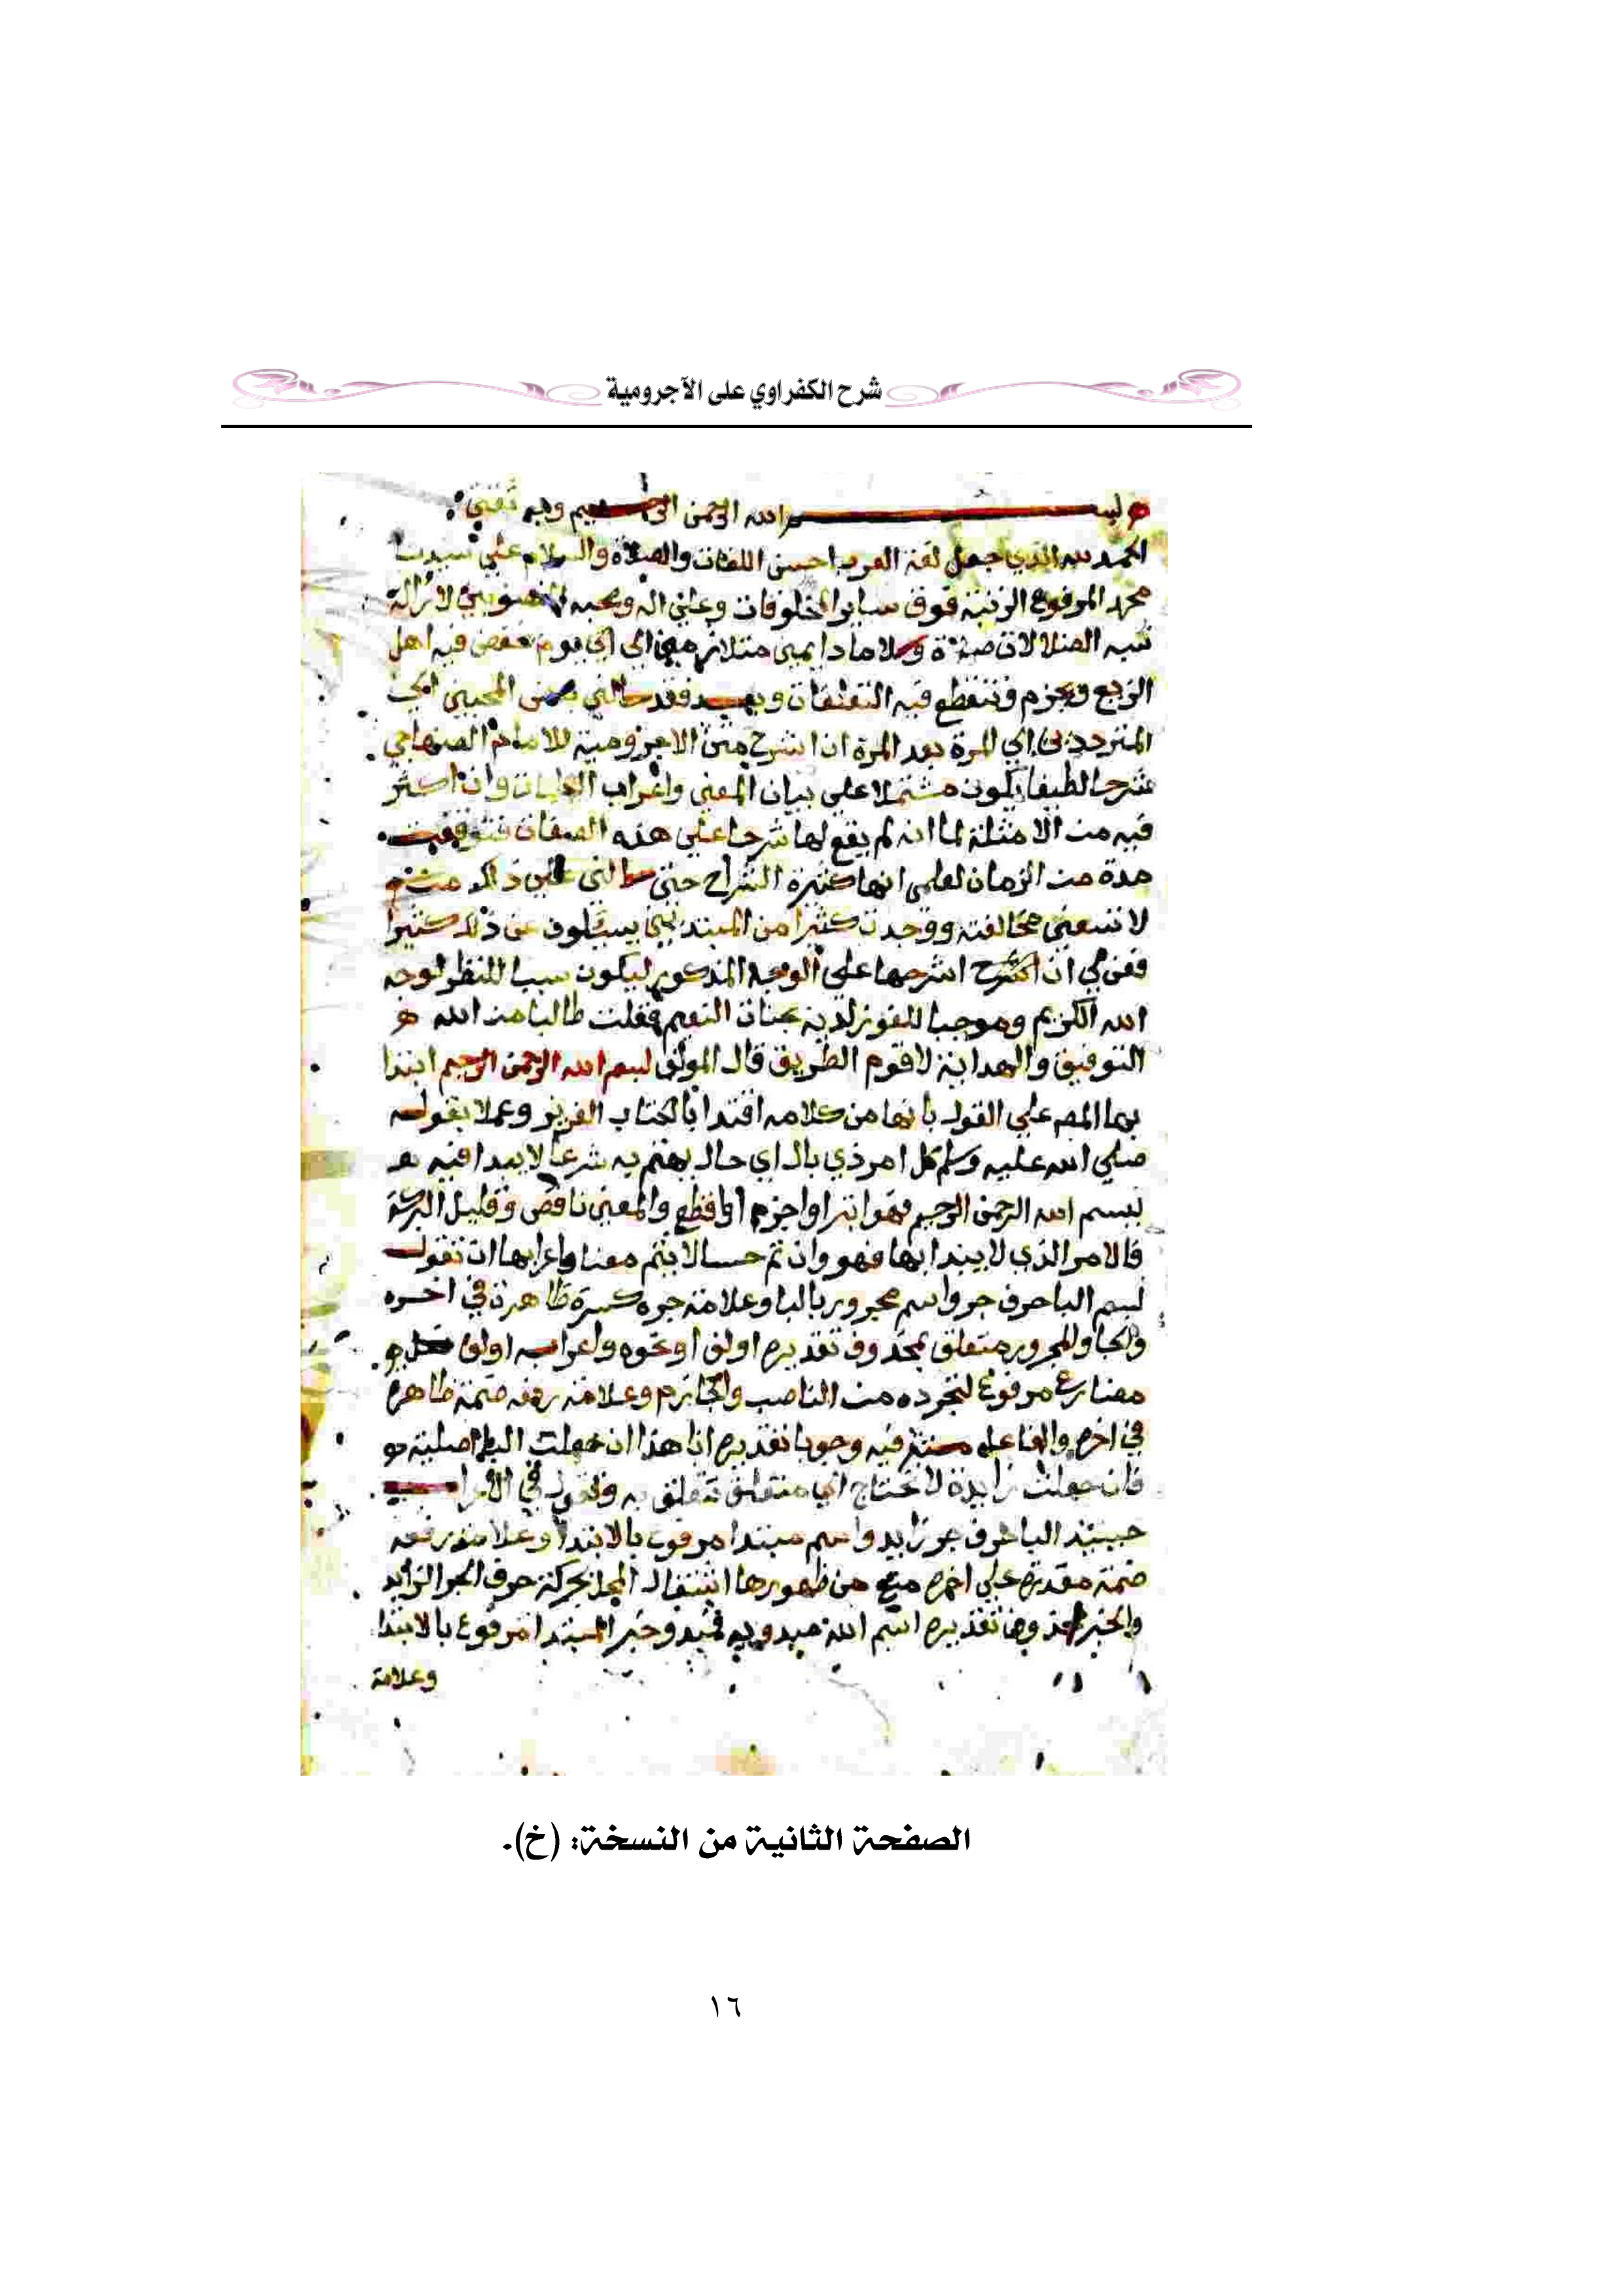 شرح الكفراوي على الآجرومية
بسم الله الرحمن الرحيم وبه ثقتي
الحمد لله الذي جعل لغة العرب احسن اللغات والصلاة والسلام علي سيدنا
محمد المرفوع الرتبة فوق ساير المخلوقات وعلي اله وصحبه المنصوبين لازالة
شبه الضلالات صلاة وسلاما دايمين متلازمين الي يوم يخفض فيه اهل
الزيع ويجزم وتنقطع فيه التعلقات وبعد فقد سالني بعض المحبين
المترددين الي المرة بعد المرة ان اشرح متن الاجرومية للامام الصنهاجي
شرحا لطيفا يكون مشتملا علي بيان المعني واعراب الكلمات وان اكثر
فيه من الامثلة لما انه لم يقع لها شرحا علي هذه الصفات فتوقفت
مدة من الزمان لعلمي انها كثيرة الشراح حتي سالني عن ذلك من
لا تسعني مخالفته ووجدت كثيرا من المبتديين يسيلون عن ذلك كثيرا
فعن لي ان اشرحها علي الوجه المذكور ليكون سببا للنظر لوجه
الله الكريم وموجبا للفوز لديه بجنات النعيم فقلت طالبا من الله
التوفيق والهداية لاقوم الطريق قال المولف بسم الله الرحمن الرحيم ابتدا
بها المص علي القول بانها من كلامه اقتدا بالكتاب العزيز وعملا بقوله
صلي الله عليه وسلم كل امر ذي بال اي حال يهتم به شرعا لا يبدا فيه
ببسم الله الرحمن الرحيم فهو ابترا واجزم او اقطع والمعني ناقص وقليل البركة
فالامر الذي لا يبتدا بها فهو وان تم حسا لا يتم معنا واعرابها ان تقول
بسم الباحرف جر واسم مجرور بالبا وعلامة جره كسرة ظاهرة في اخره
والجار والمجرور متعلق بمحذوف تقديره اولف او نحوه واعراب اولف فعل
مضارع مرفوع لتجرده من الناصب والجازم وعلامة رفعه ضمة ظاهرة
في اخره والفاعل مستتر فيه وجوبا تقديره انا هذا ان جعلت البا اصلية
فان جعلت زايدة لا تحتاج الي متعلق تتعلق به وتقول في الاعراب
حينيذ الباحرف جر زايد واسم مبتدا مرفوع بالابتدا وعلامة رفعه
ضمة مقدرة علي اخره منع من ظهورها اشتغال المحل بحركة حرف الجر الزائد
والخبر محذوف تقديره اسم الله مبدو به فمبدو خبر المبتدا مرفوع بالابتدا
وعلامة
الصفحة الثانية من النسخة: (خ).
١٦